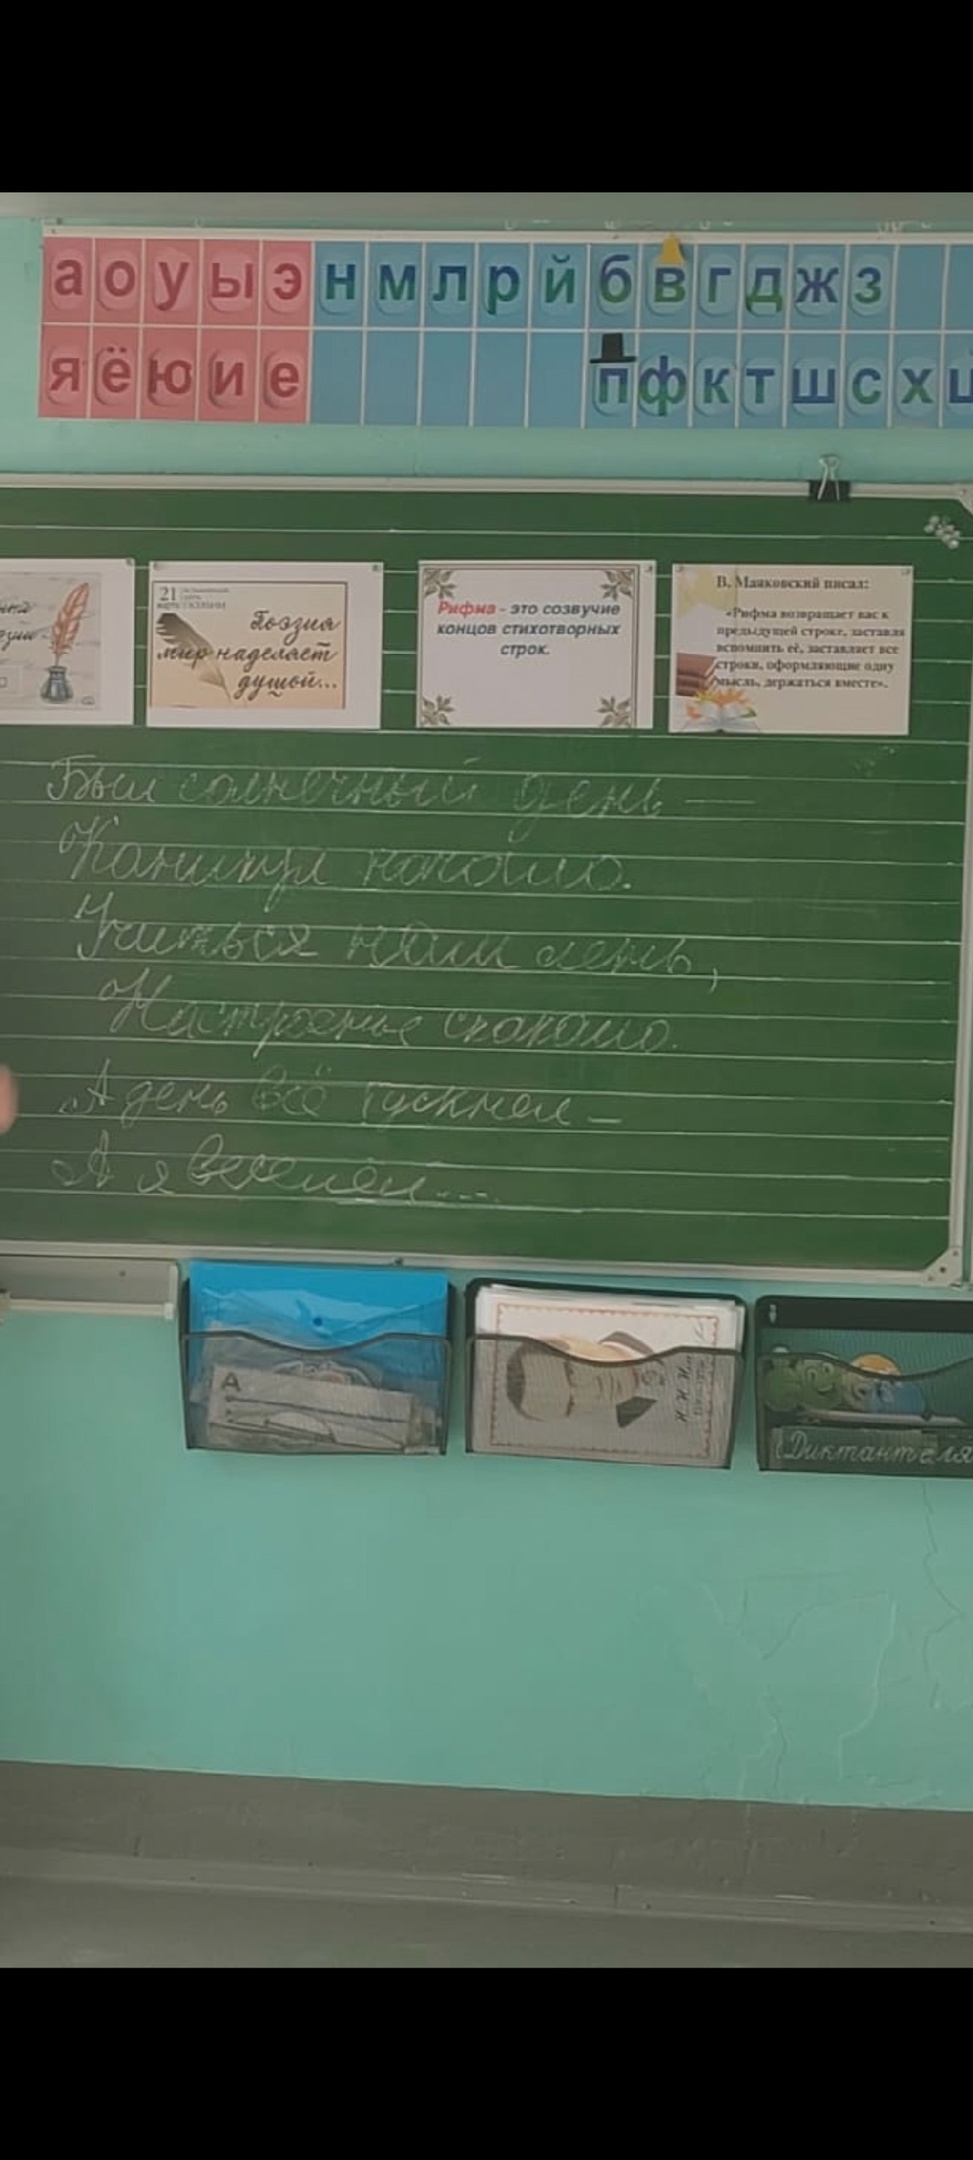 а о у ы э н м л р й б в г д ж з
я ё ю и е п ф к т ш с х
21
марта
Поэзия
мир наделяет
душой...
Рифма - это созвучие
концов стихотворных
строк.
В. Маяковский писал:
«Рифма возвращает вас к
предыдущей строке, заставляя
вспомнить её, заставляет все
строки, оформляющие одну
мысль, держаться вместе».
Был солнечный день —
Каникул начало.
Учиться нам лень,
Настроенье скакало.
А день всё тускнел —
А я веселел...
А
Диктант для